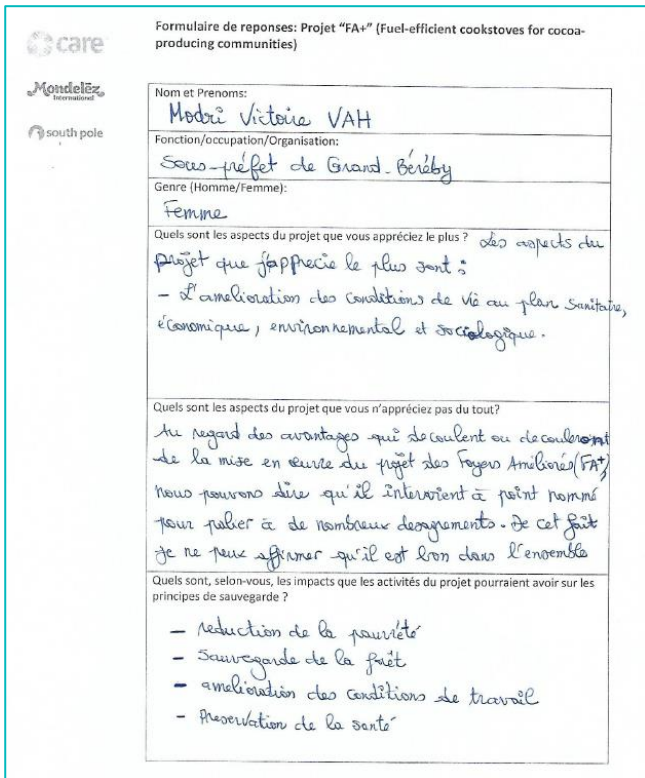 care
Mondelēz
International
south pole
Formulaire de reponses: Projet "FA+" (Fuel-efficient cookstoves for cocoa-
producing communities)
Nom et Prenoms:
Modri Victoire VAH
Fonction/occupation/Organisation:
Sous-préfet de Grand-Béréby
Genre (Homme/Femme):
Femme
Quels sont les aspects du projet que vous appréciez le plus ? Les aspects du
projet que j'apprecie le plus sont :
- L'amelioration des conditions de vie au plan sanitaire,
économique, environnemental et sociologique.
Quels sont les aspects du projet que vous n'appréciez pas du tout?
Au regard des avantages qui decoulent ou decouleront
de la mise en œuvre du projet des Foyers Améliorés (FA+)
nous pouvons dire qu'il intervient à point nommé
pour palier à de nombreux desagrements. De cet fait
je ne peux affirmer qu'il est bon dans l'ensemble
Quels sont, selon-vous, les impacts que les activités du projet pourraient avoir sur les
principes de sauvegarde ?
- reduction de la pauvreté
- Sauvegarde de la forêt
- amelioration des conditions de travail
- Preservation de la santé